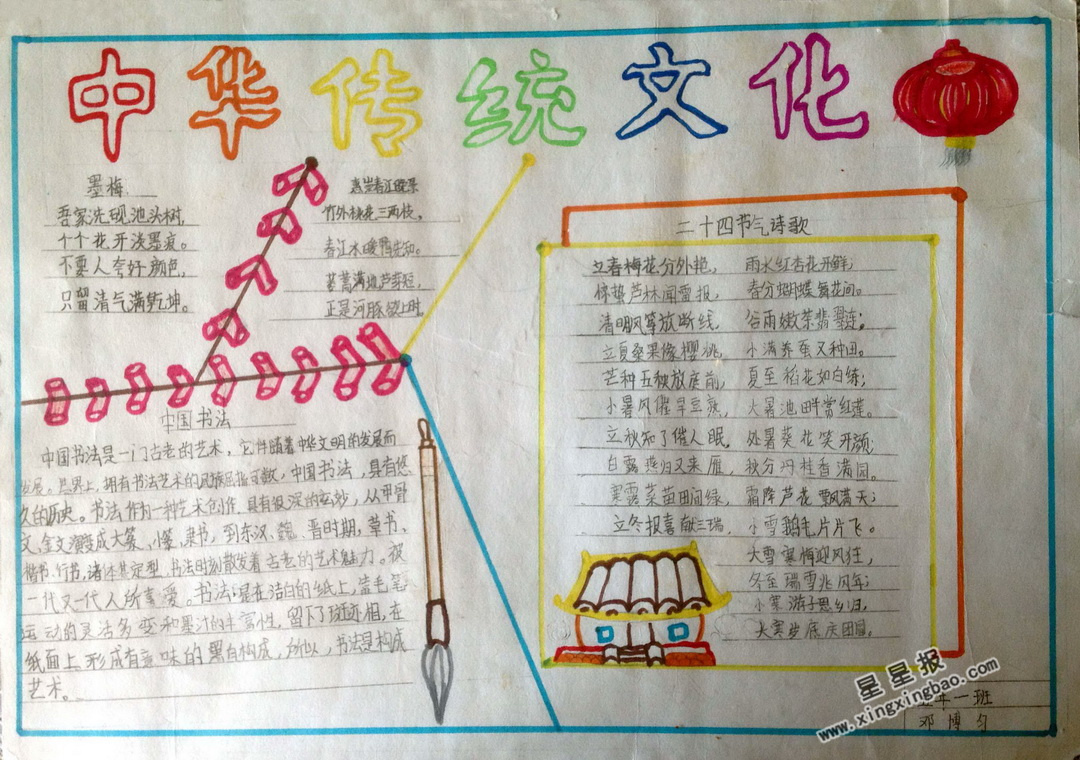 中华传统文化
墨梅
吾家洗砚池头树,
个个花开淡墨痕。
不要人夸好颜色,
只留清气满乾坤。
惠崇春江晚景
竹外桃花三两枝。
春江水暖鸭先知。
蒌蒿满地芦芽短,
正是河豚欲上时。
中国书法
中国书法是一门古老的艺术,它伴随着中华文明的发展而
发展。世界上,拥有书法艺术的民族屈指可数,中国书法,具有悠
久的历史。书法作为一种艺术创作,具有极深的玄妙,从甲骨
文,金文演变成大篆、小篆、隶书,到东汉、魏、晋时期,草书、
楷书、行书,诸体基定型,书法时刻散发着古老的艺术魅力。被
一代又一代人所喜爱。书法:是在洁白的纸上,靠毛笔
运动的灵活多变和墨汁的丰富性,留下了斑迹相,在
纸面上形成有意味的黑白构成,所以,书法是构成
艺术。
二十四节气诗歌
立春梅花分外艳, 雨水红杏花开鲜;
惊蛰芦林闻雷报, 春分蝴蝶舞花间。
清明风筝放断线, 谷雨嫩茶翡翠连;
立夏桑果像樱桃, 小满养蚕又种田。
芒种五秧放庭前, 夏至稻花如白练;
小暑风催早豆熟, 大暑池畔赏红莲。
立秋知了催人眠, 处暑葵花笑开颜;
白露燕归又来雁, 秋分丹桂香满园。
寒露菜苗田间绿, 霜降芦花飘满天;
立冬报喜献三瑞, 小雪鹅毛片片飞。
大雪寒梅迎风狂,
冬至瑞雪兆风年;
小寒游子思乡归,
大寒岁底庆团圆。
星星报
www.xingxingbao.com
年一班
邓博匀